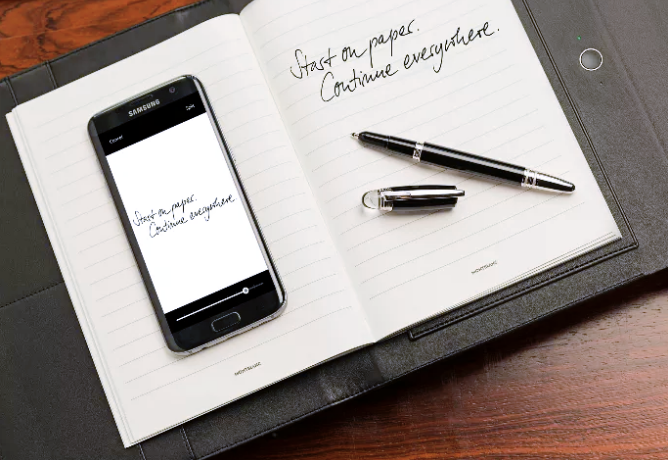 SAMSUNG
Cancel
Start on paper.
Continue everywhere.
Start on paper.
Continue everywhere.
MONTBLANC
MONTBLANC